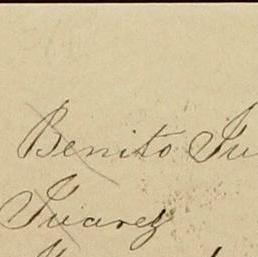 Benito Ju
Juarez